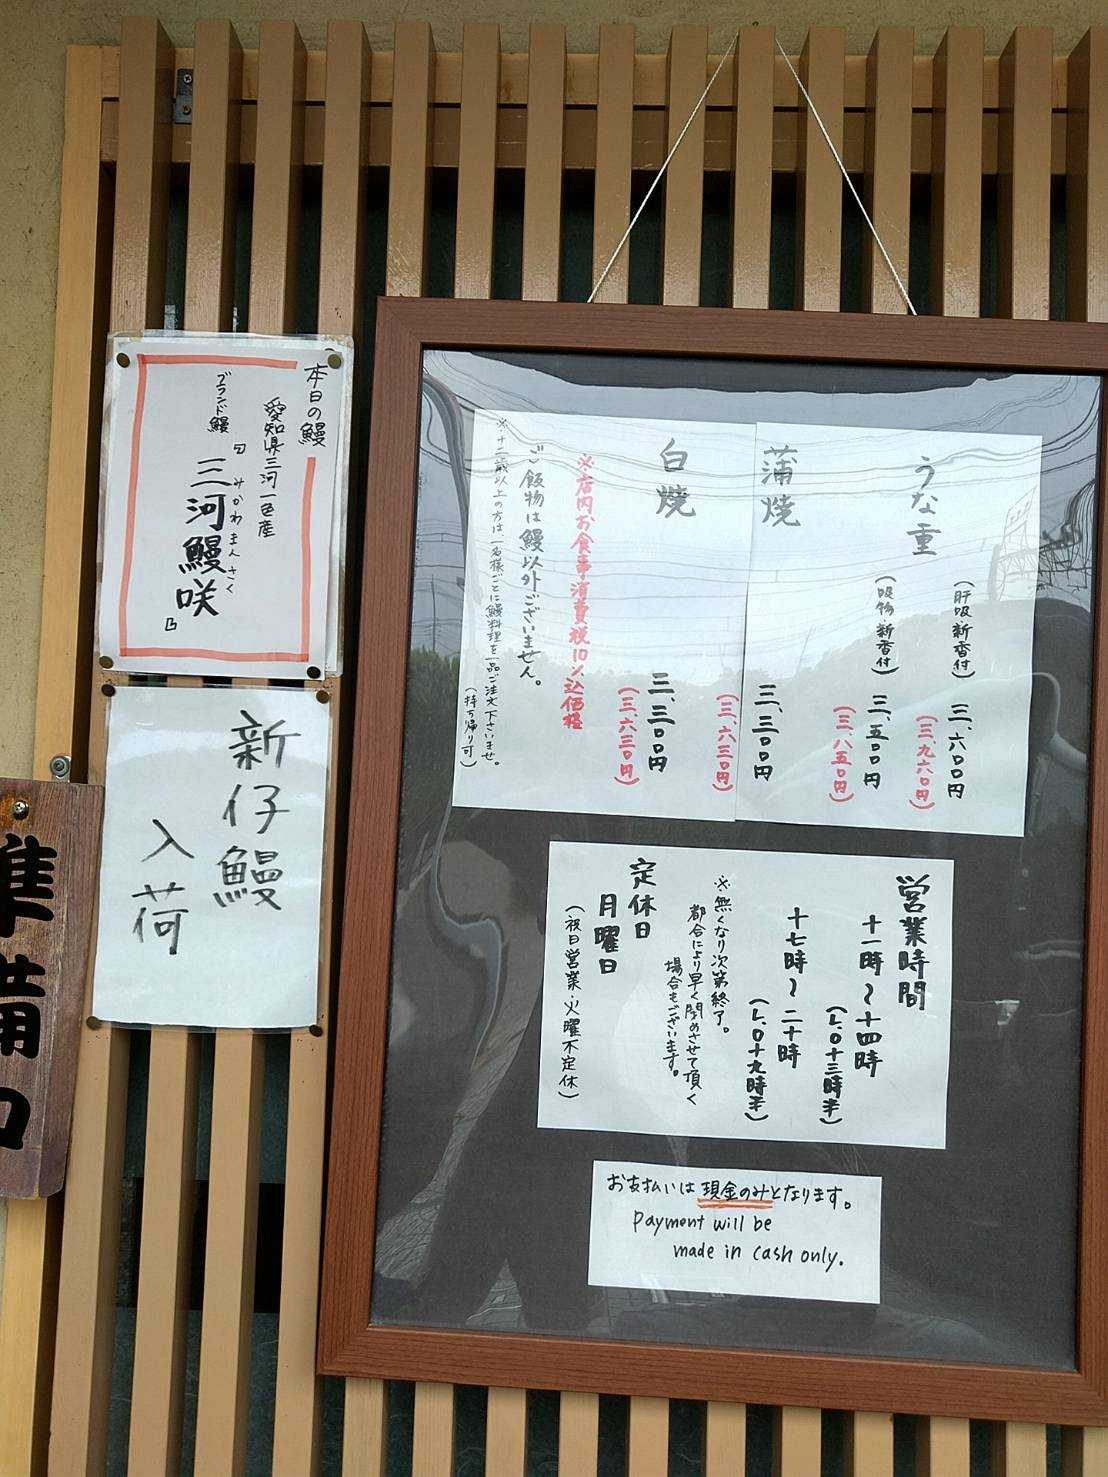 本日の鰻
愛知県三河一色産
ブランド鰻
「三河鰻咲」
みかわまんさく
新仔鰻
入荷
うな重
(肝吸・新香付)
三、六〇〇円
(三、九六〇円)
(吸物・新香付)
三、五〇〇円
(三、八五〇円)
蒲焼
三、三〇〇円
(三、六三〇円)
白焼
三、三〇〇円
(三、六三〇円)
※店内お食事消費税10%込価格
ご飯物は鰻以外ございません。
※十二歳以上の方は一名様ごとに鰻料理を一品ご注文下さいませ。
(持ち帰り可)
営業時間
十一時〜十四時
(L.O十三時半)
十七時〜二十時
(L.O十九時半)
※無くなり次第終了。
都合により早く閉めさせて頂く
場合もございます。
定休日
月曜日
(祝日営業・火曜不定休)
お支払いは現金のみとなります。
Payment will be
made in cash only.
準備中